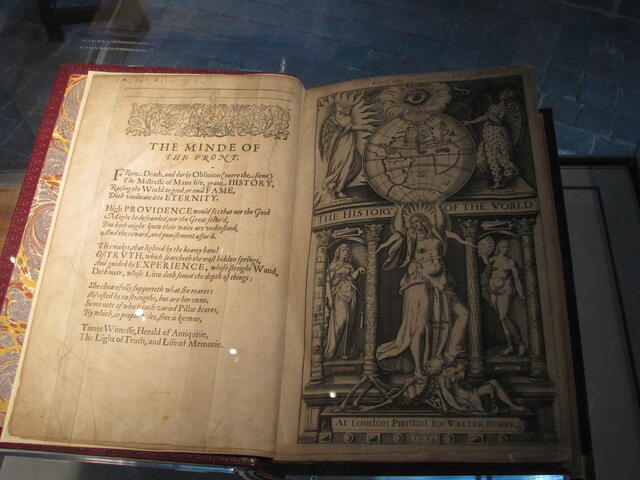 THE MINDE OF
THE FRONT.
From Death, and darke Oblivion (neere the same)
The Mistresse of Mans life, grave HISTORY,
Raising the World to good, or evill FAME,
Doth vindicate it to ETERNITY.
High PROVIDENCE would so: that nor the Good
Might be defrauded, nor the Great secur'd,
But both might know their waies are understood,
And the reward, and punishment assur'd.
This makes, that lighted by the beamy hand
Of TRVTH, which searcheth the most hidden springs,
And guided by EXPERIENCE, whose streight Wand
Doth mete, whose Line doth sound the depth of things:
She chearefully supporteth what she reares:
Assisted by no strengths, but are her owne,
Some note of which each varied Pillar beares,
By which, as proper titles, shee is knowne,
Times Witnesse, Herald of Antiquitie,
The Light of Truth, and Life of Memorie.
THE HISTORY OF THE WORLD
At London Printed for WALTER BVRRE.